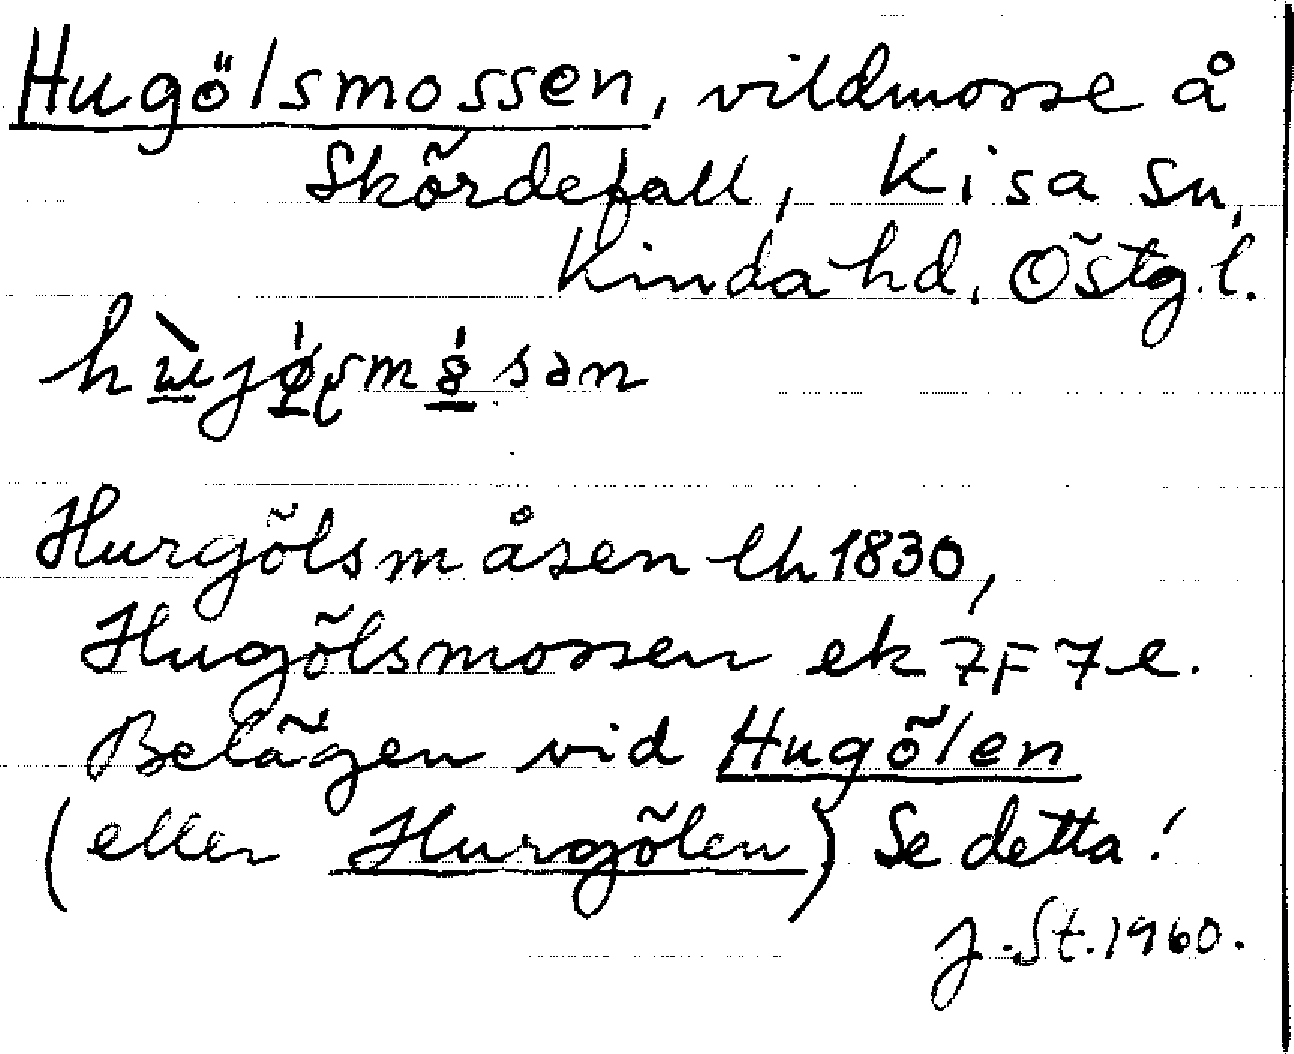 Hugölsmossen, vildmosse å
Skördefall, Kisa sn,
Kinda hd, Östg.l.
Hurgölsmåsen lh 1830,
Hugölsmossen ek 7F7e.
Belägen vid Hugölen
(eller Hurgölen) Se detta!
J.St.1960.